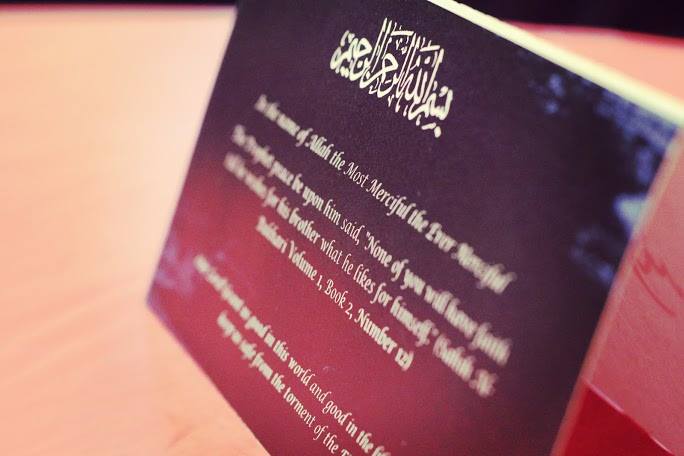 بسم الله الرحمن الرحيم
In the name of Allah the Most Merciful the Ever Merciful
The Prophet peace be upon him said, "None of you will have faith
till he wishes for his brother what he likes for himself." (Sahih Al-
Bukhari Volume 1, Book 2, Number 12)
our Lord grant us good in this world and good in the
keep us safe from the torment of the